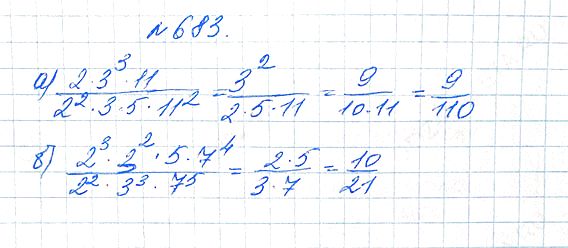 №683.
а) \frac{2·3^3·11}{2^2·3·5·11^2} = \frac{3^2}{2·5·11} = \frac{9}{10·11} = \frac{9}{110}
б) \frac{2^3·3^2·5·7^4}{2^2·3^3·7^5} = \frac{2·5}{3·7} = \frac{10}{21}